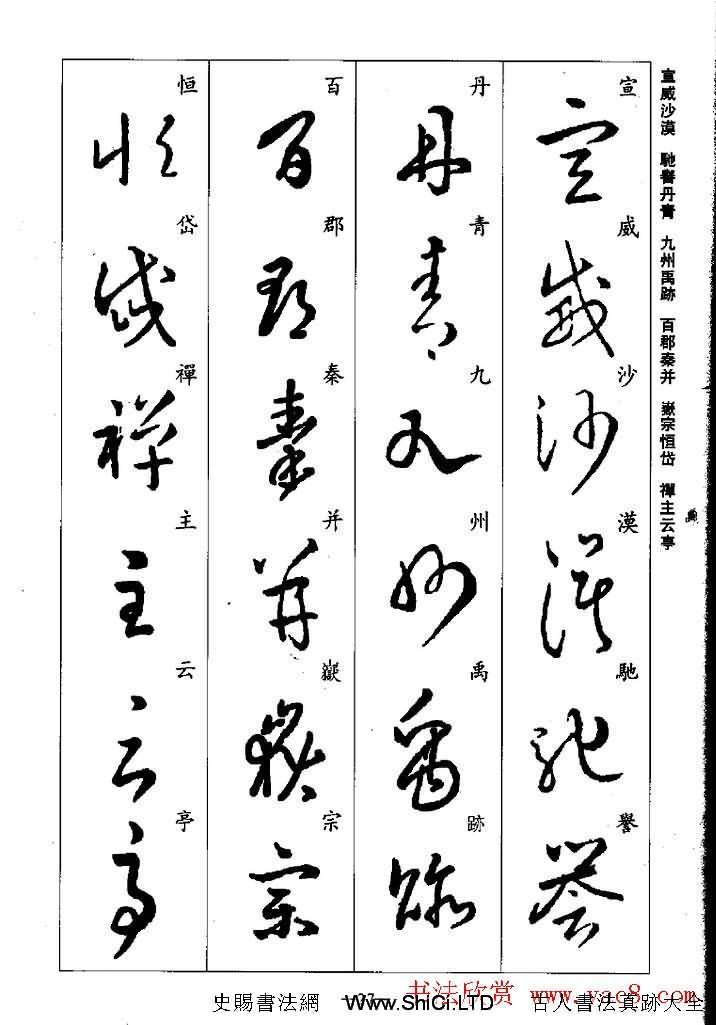 宣威沙漠　馳譽丹青　九州禹跡　百郡秦并　嶽宗恒岱　禪主云亭
宣威沙漠馳譽
丹青九州禹跡
百郡秦并嶽宗
恒岱禪主云亭
书法欣赏 www.yac8.com
史賜書法網 www.ShiCi.LTD 古人書法真跡大全